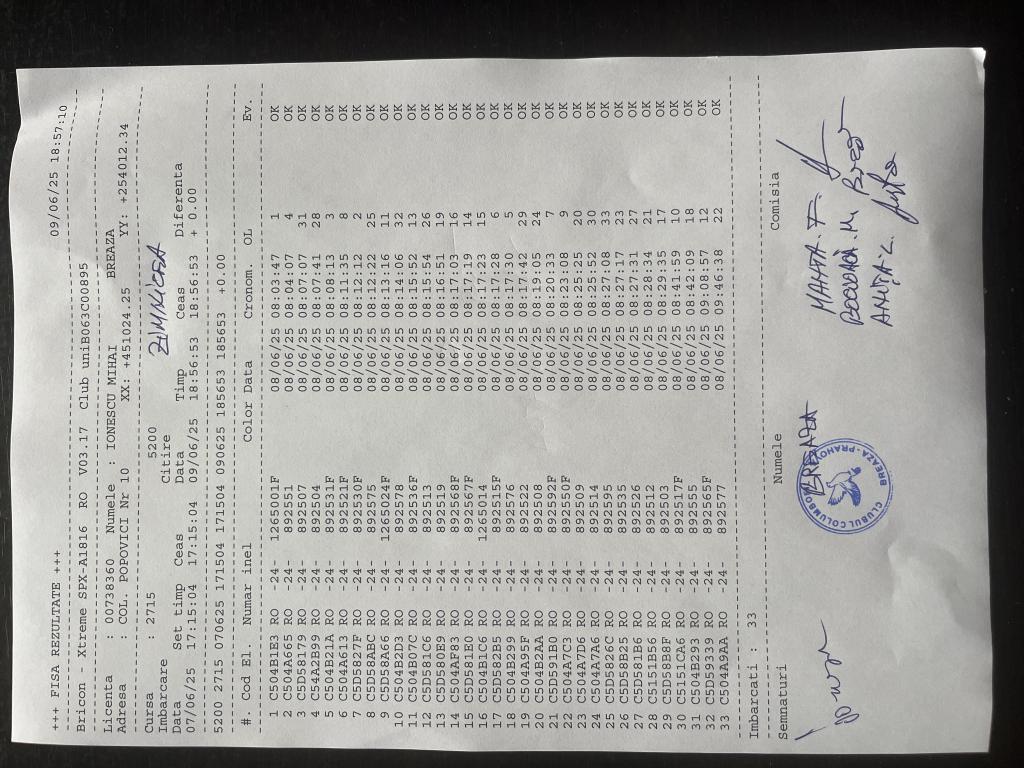 +++ FISA REZULTATE +++ 09/06/25 18:57:10
Bricon - Xtreme SPX-A1816 RO V03.17 Club uniB063C00895
Licenta : 00738360 Numele : IONESCU MIHAI BREAZA
Adresa : COL. POPOVICI Nr 10 XX: +451024.25 YY: +254012.34
Cursa : 2715 5200
Imbarcare Citire ZIMNICEA
Data Set timp Ceas Data Timp Ceas Diferenta
07/06/25 17:15:04 17:15:04 09/06/25 18:56:53 18:56:53 + 0.00
5200 2715 070625 171504 171504 090625 185653 185653 +0.00
#. Cod El. Numar inel Color Data Cronom. OL Ev.
1 C504B1E3 RO -24- 1265001F 08/06/25 08:03:47 1 OK
2 C504A665 RO -24- 892551 08/06/25 08:04:07 4 OK
3 C5D58179 RO -24- 892507 08/06/25 08:07:07 31 OK
4 C54A2B99 RO -24- 892504 08/06/25 08:07:41 28 OK
5 C504B21A RO -24- 892531F 08/06/25 08:08:13 3 OK
6 C504A613 RO -24- 892521F 08/06/25 08:11:35 8 OK
7 C5D5827F RO -24- 892530F 08/06/25 08:12:12 2 OK
8 C5D58ABC RO -24- 892575 08/06/25 08:12:22 25 OK
9 C5D58A66 RO -24- 1265024F 08/06/25 08:13:16 11 OK
10 C504B2D3 RO -24- 892578 08/06/25 08:14:06 32 OK
11 C504B07C RO -24- 892536F 08/06/25 08:15:52 13 OK
12 C5D581C6 RO -24- 892513 08/06/25 08:15:54 26 OK
13 C5D580E9 RO -24- 892519 08/06/25 08:16:51 19 OK
14 C504AF83 RO -24- 892568F 08/06/25 08:17:03 16 OK
15 C5D581E0 RO -24- 892567F 08/06/25 08:17:19 14 OK
16 C504B1C6 RO -24- 1265014 08/06/25 08:17:23 15 OK
17 C5D582B5 RO -24- 892515F 08/06/25 08:17:28 6 OK
18 C504B299 RO -24- 892576 08/06/25 08:17:30 5 OK
19 C504A95F RO -24- 892522 08/06/25 08:17:42 29 OK
20 C504B2AA RO -24- 892508 08/06/25 08:19:05 24 OK
21 C5D591B0 RO -24- 892592F 08/06/25 08:20:33 7 OK
22 C504A7C3 RO -24- 892550F 08/06/25 08:23:08 9 OK
23 C504A7D6 RO -24- 892509 08/06/25 08:25:25 20 OK
24 C504A7A6 RO -24- 892514 08/06/25 08:25:52 30 OK
25 C5D5826C RO -24- 892595 08/06/25 08:27:08 33 OK
26 C5D58B25 RO -24- 892535 08/06/25 08:27:17 23 OK
27 C5D581B6 RO -24- 892526 08/06/25 08:27:31 27 OK
28 C5151B56 RO -24- 892512 08/06/25 08:28:34 21 OK
29 C5D58B8F RO -24- 892503 08/06/25 08:29:35 17 OK
30 C5151CA6 RO -24- 892517F 08/06/25 08:41:59 10 OK
31 C504B293 RO -24- 892555 08/06/25 08:42:09 18 OK
32 C5D59339 RO -24- 892565F 08/06/25 09:08:57 12 OK
33 C504A9AA RO -24- 892577 08/06/25 09:46:38 22 OK
Imbarcati : 33
Semnaturi Numele Comisia
BREAZA
CLUBUL COLUMBO
BREAZA - PRAHOV